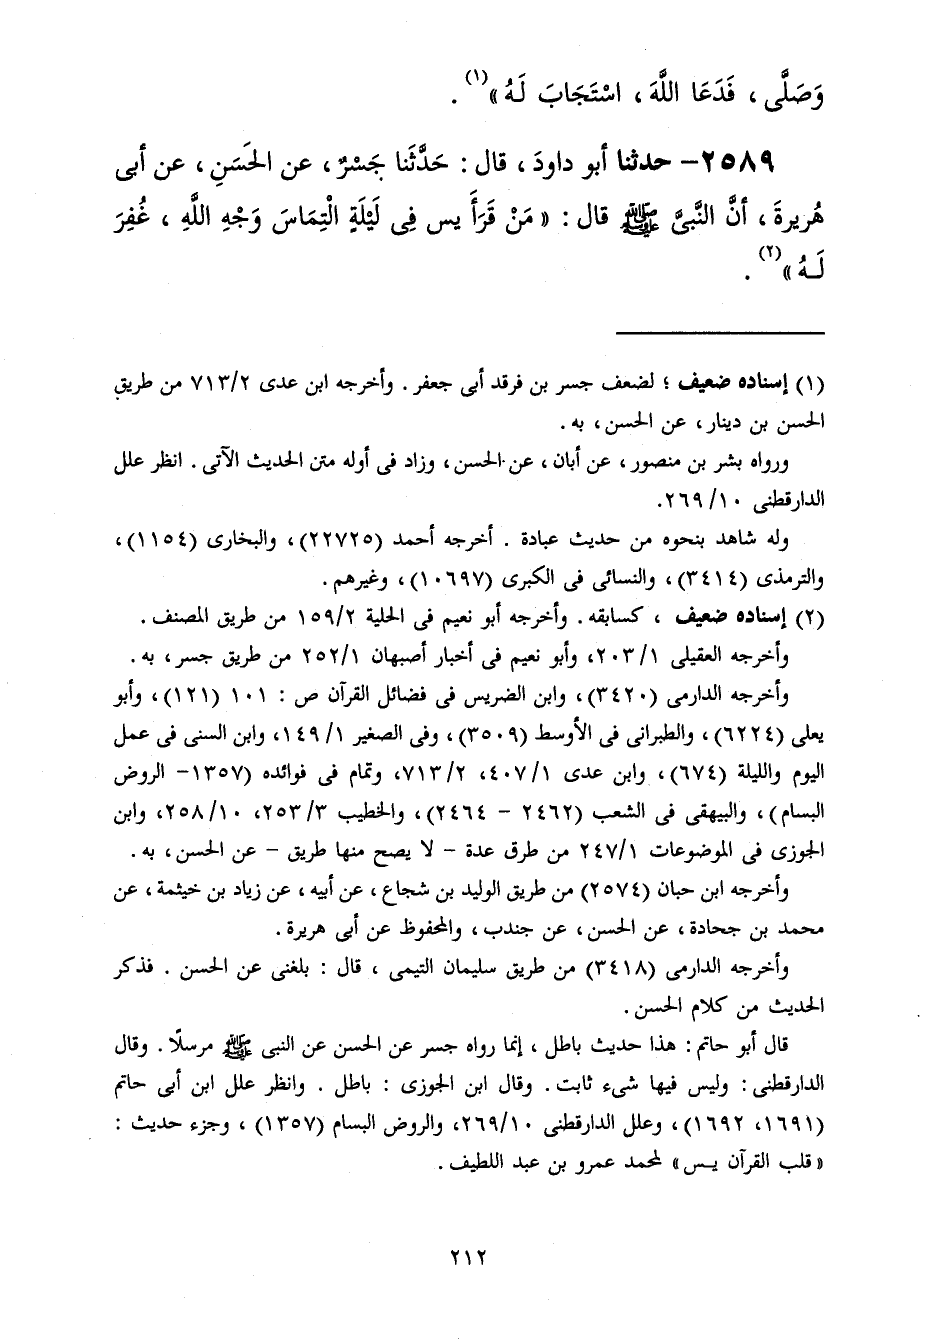 وَصَلَّى ، فَدَعَا اللَّهَ ، اسْتَجَابَ لَهُ »(١) .
٢٥٨٩- حدثنا أبو داودَ ، قال : حَدَّثَنا جَسْرٌ ، عن الحَسَنِ ، عن أبى
هُريرةَ ، أنَّ النَّبىَّ ﷺ قال : « مَنْ قَرَأَ يس فِى لَيْلَةٍ الْتِمَاسَ وَجْهِ اللَّهِ ، غُفِرَ
لَـهُ »(٢) .
(١) إسناده ضعيف ؛ لضعف جسر بن فرقد أبى جعفر . وأخرجه ابن عدى ٧١٣/٢ من طريق
الحسن بن دينار ، عن الحسن ، به .
ورواه بشر بن منصور ، عن أبان ، عن الحسن ، وزاد فى أوله متن الحديث الآتى . انظر علل
الدارقطنى ٢٦٩/١٠.
وله شاهد بنحوه من حديث عبادة . أخرجه أحمد (٢٢٧٢٥) ، والبخارى (١١٥٤) ،
والترمذى (٣٤١٤) ، والنسائى فى الكبرى (١٠٦٩٧) ، وغيرهم .
(٢) إسناده ضعيف ، كسابقه . وأخرجه أبو نعيم فى الحلية ١٥٩/٢ من طريق المصنف .
وأخرجه العقيلى ٢٠٣/١، وأبو نعيم فى أخبار أصبهان ٢٥٢/١ من طريق جسر ، به .
وأخرجه الدارمى (٣٤٢٠) ، وابن الضريس فى فضائل القرآن ص : ١٠١ (١٢١) ، وأبو
يعلى (٦٢٢٤) ، والطبرانى فى الأوسط (٣٥٠٩) ، وفى الصغير ١٤٩/١، وابن السنى فى عمل
اليوم والليلة (٦٧٤) ، وابن عدى ٤٠٧/١، ٧١٣/٢، وتمام فى فوائده (١٣٥٧- الروض
البسام) ، والبيهقى فى الشعب (٢٤٦٢ - ٢٤٦٤) ، والخطيب ٢٥٣/٣، ٢٥٨/١٠، وابن
الجوزى فى الموضوعات ٢٤٧/١ من طرق عدة - لا يصح منها طريق - عن الحسن ، به .
وأخرجه ابن حبان (٢٥٧٤) من طريق الوليد بن شجاع ، عن أبيه ، عن زياد بن خيثمة ، عن
محمد بن جحادة ، عن الحسن ، عن جندب ، والمحفوظ عن أبى هريرة .
وأخرجه الدارمى (٣٤١٨) من طريق سليمان التيمى ، قال : بلغنى عن الحسن . فذكر
الحديث من كلام الحسن .
قال أبو حاتم : هذا حديث باطل ، إنما رواه جسر عن الحسن عن النبى ﷺ مرسلًا . وقال
الدارقطنى : وليس فيها شىء ثابت . وقال ابن الجوزى : باطل . وانظر علل ابن أبى حاتم
(١٦٩١، ١٦٩٢) ، وعلل الدارقطنى ٢٦٩/١٠، والروض البسام (١٣٥٧) ، وجزء حديث :
« قلب القرآن يـس » لمحمد عمرو بن عبد اللطيف .
٢١٢